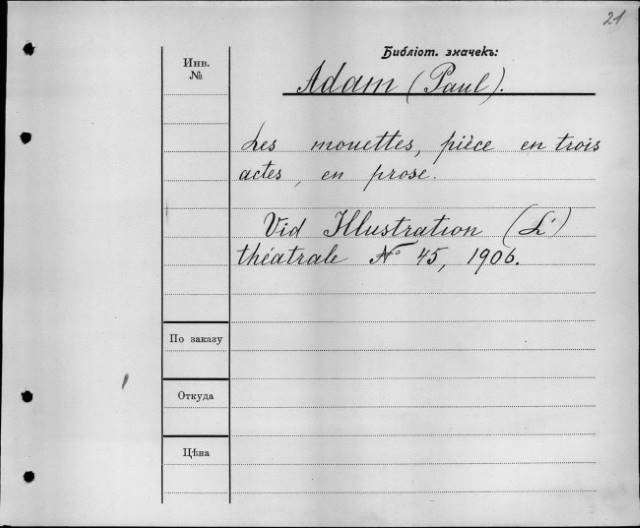 21
Библіот. значекъ:
Инв.
№
Adam (Paul).
Les mouettes, pièce en trois
actes, en prose.
Vid Illustration (L')
théatrale No 45, 1906.
По заказу
Откуда
Цѣна